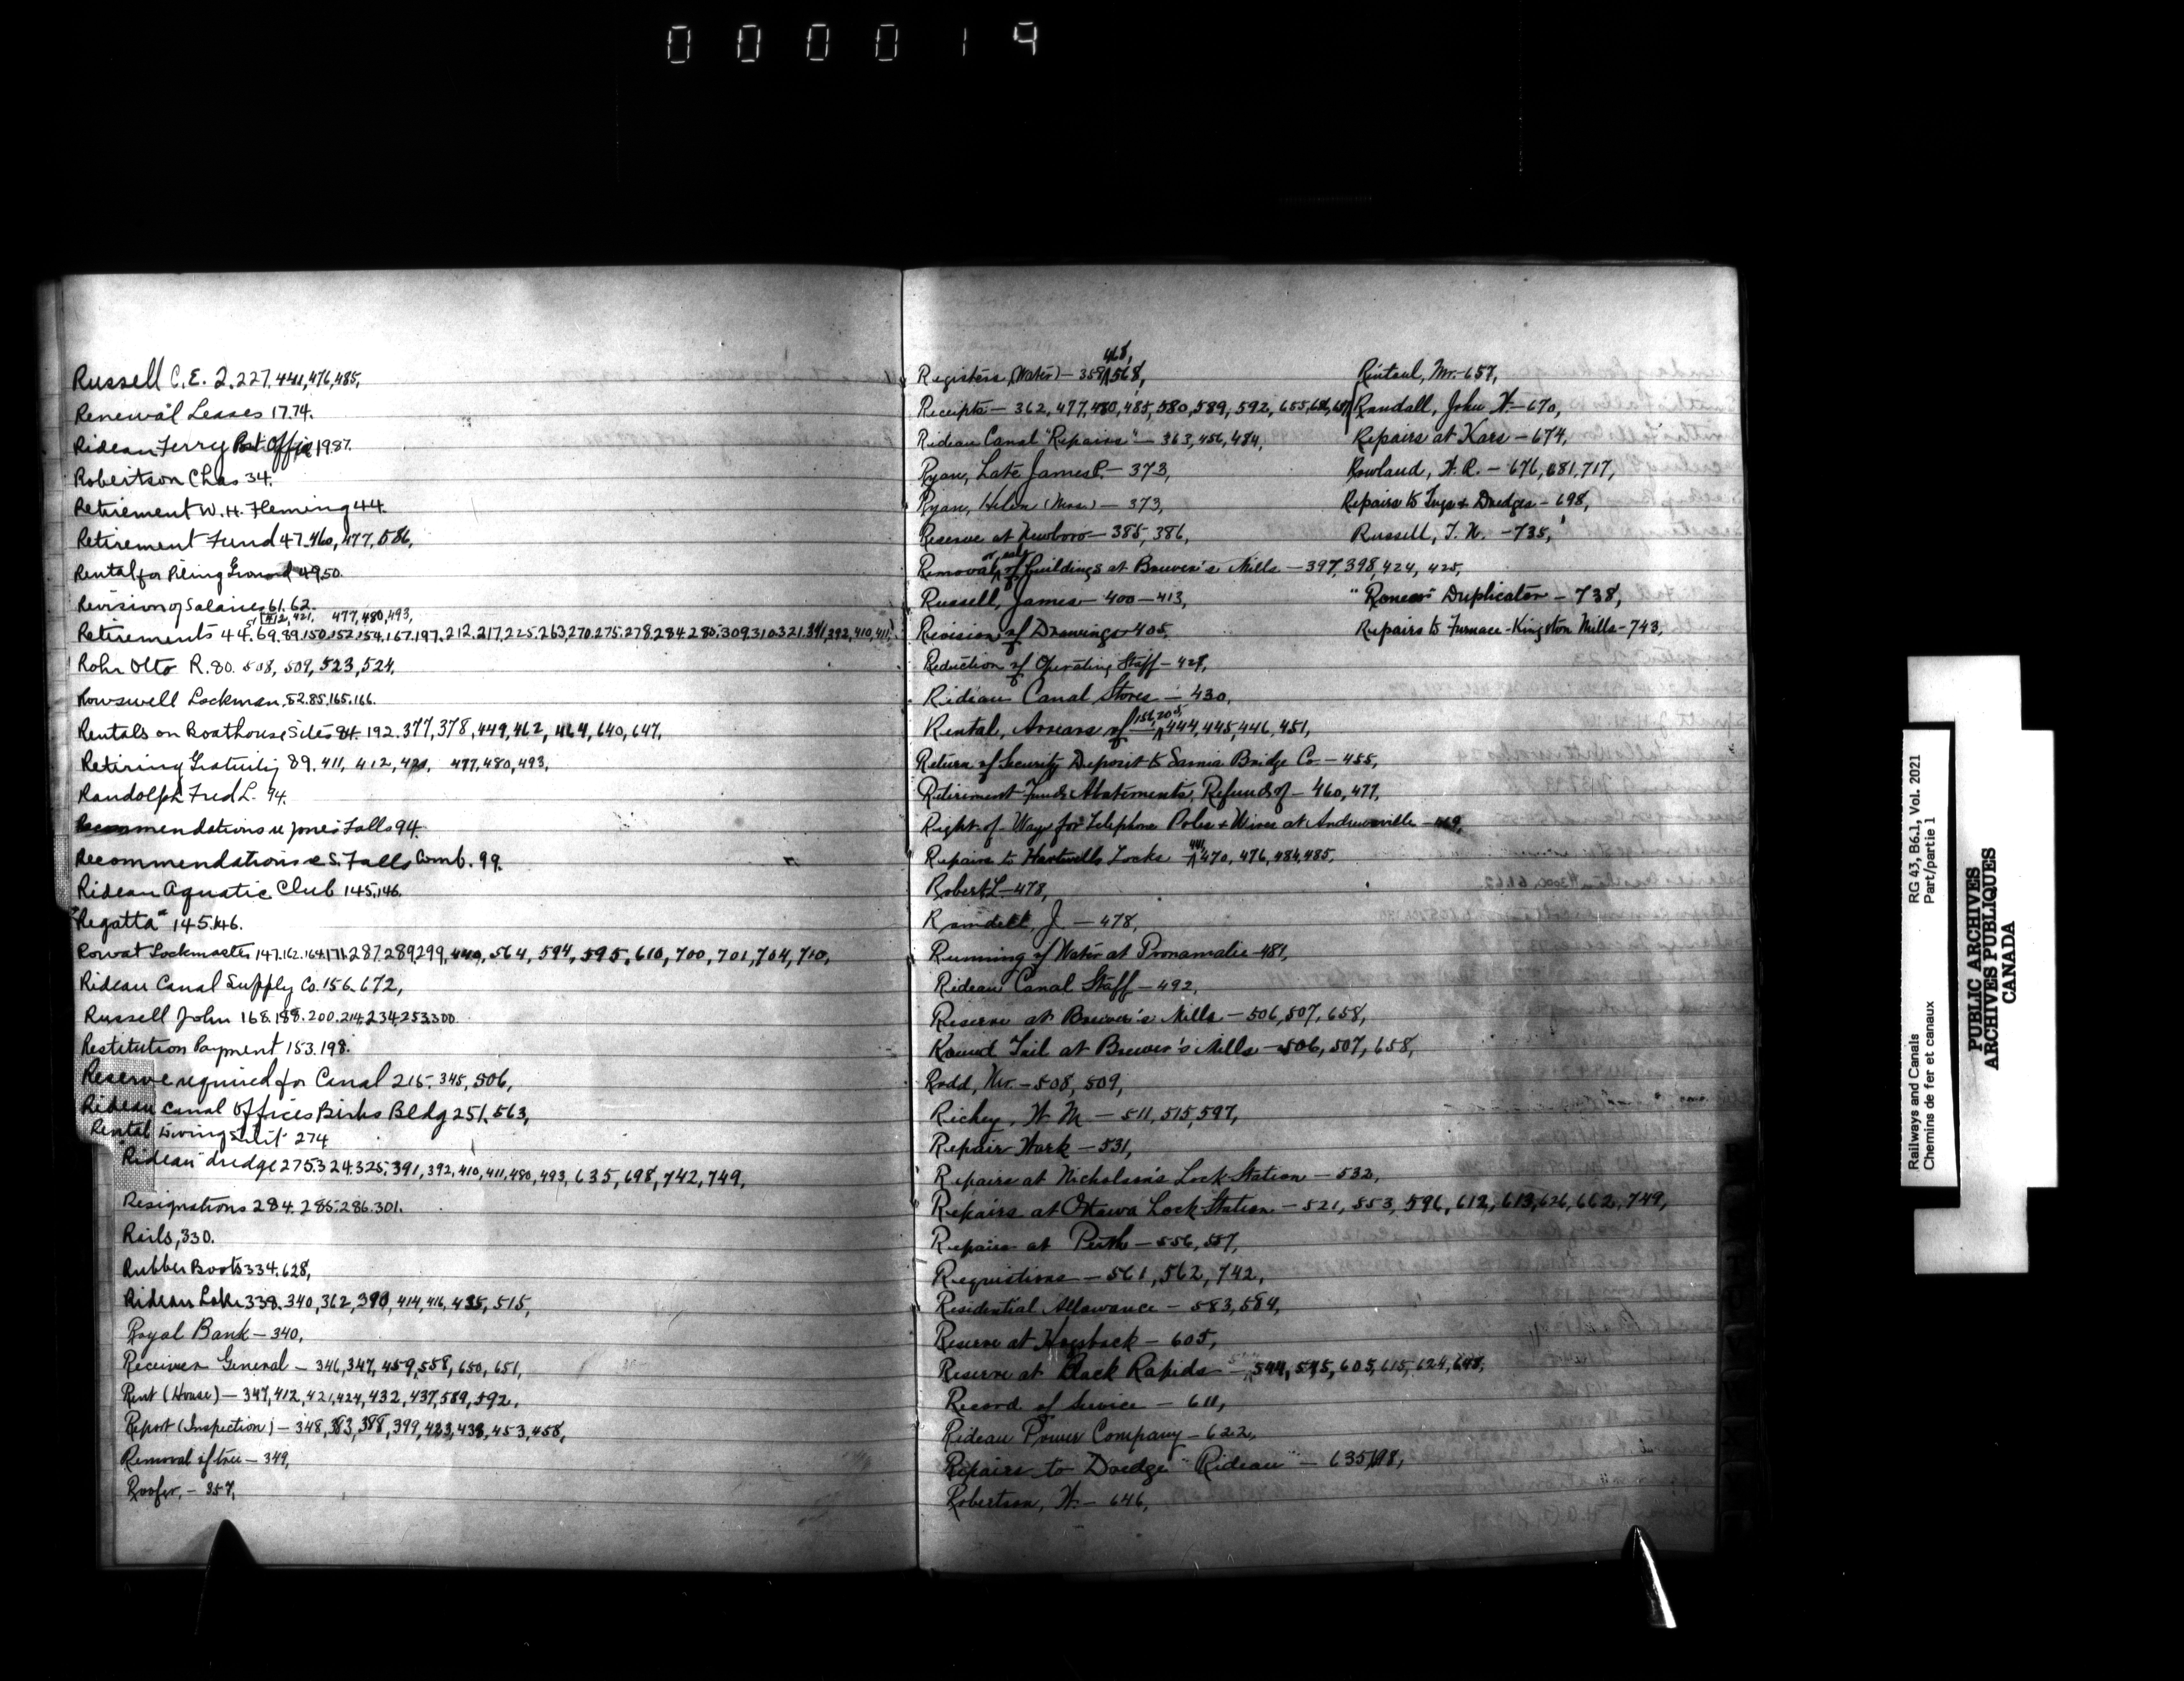 000019
Russell C.E. 2.227.441,476,485,
Renewal Leases 17.74.
Rideau Ferry Post Office 19.87.
Robertson Chas 34.
Retirement W.H. Fleming 44.
Retirement Fund 47.460,477,586,
Rental for Piling Ground 49.50.
Revision of Salaries 61.62.
412,421, 477,480,493,
Retirements 44.69.89.150.152.154.167.197.212.217.225.263.270.275.278.284.285.309.310.321.391,392,410,411,
Rohr Otto R.80. 508, 509, 523, 524,
Rowswell Lockman. 82.85.165.166.
Rentals on Boathouse Sites 84. 192.377,378,449,462, 464,640,647,
Retiring Gratuity 89.411, 412,421, 477,480,493,
Randolph Fred L. 94.
Recommendations re Jones Falls 94.
Recommendations re S. Falls Comb. 99.
Rideau Aquatic Club 145,146.
"Regatta" 145.146.
Rowat Lockmaster 147.162.164.171.287.289.299,440,564, 594, 595,610,700,701,704,710,
Rideau Canal Supply Co. 156.672,
Russell John 168.188.200.214.234.253.300
Restitution Payment 153.198.
Reserve required for Canal 215. 345, 506,
Rideau Canal Offices Birks Bldg 251.563,
Rental 274
"Rideau" dredge 275.324.325.391,392,410,411,480,493,635,698,742,749,
Resignations 284.285.286.301.
Rails, 330.
Rubber Boots 334.628,
Rideau Lake 338.340,362,390,414,416,435,515,
Royal Bank – 340,
Receiver General – 346,347,459,558,650,651,
Rent (House) – 347,412,421,424,432,437,589,592,
Report (Inspection) – 348,383,398,399,423,438,453,458,
Removal of tree – 349,
Roofer, – 357,
468,
Registers (Water) – 358, 568,
Receipts – 362, 477, 480, 485, 580, 589, 592, 655,
Rideau Canal "Repairs" – 363, 456, 484,
Ryan, Late James P. – 373,
Ryan, Helen (Mrs.) – 373,
Reserve at Newboro – 385, 386,
or sale
Removal of Buildings at Brewer's Mills – 397, 398, 424, 425,
Russell, James – 400 – 413,
Revision of Drawings – 405,
Reduction of Operating Staff – 428,
Rideau Canal Stores – 430,
Rental, Arrears of – 444, 445, 446, 451,
Return of Security Deposit to Sarnia Bridge Co – 455,
Retirement Fund Abatements, Refunds of – 460, 477,
Right-of-Way for Telephone Poles & Wires at Andrewsville – 469,
Repairs to Hartwells Locks 470, 476, 484, 485,
Robert L – 478,
Ramdell, J. – 478,
Running of Water at Poonamalie – 481,
Rideau Canal Staff – 492,
Reserve at Brewer's Mills – 506, 507, 658,
Round Tail at Brewer's Mills – 506, 507, 658,
Rodd, Mr. – 508, 509,
Richey, W M – 511, 515, 597,
Repair Work – 531,
Repairs at Nicholson's Lock-Station – 532,
Repairs at Ottawa Lock-Station – 521, 553, 596, 612, 613, 626, 662, 749,
Repairs at Perth – 556, 557,
Requistions – 561, 562, 742,
Residential Allowance – 583, 584,
Reserve at Hogsback – 605,
Reserve at Black Rapids – 544, 545, 605, 615, 624, 648,
Record of Service – 611,
Rideau Power Company – 622,
Repairs to Dredge "Rideau" – 635, 698,
Robertson, W. – 646,
Rintoul, Mr. – 657,
Randall, John W. – 670,
Repairs at Kars – 674,
Rowland, H. R. – 676, 681, 717,
Repairs to Tugs & Dredges – 698,
Russell, T. N. – 735,
"Roneo" Duplicator – 738,
Repairs to Furnace - Kingston Mills – 743,
Railways and Canals
Chemins de fer et canaux
RG 43, B6.1, Vol. 2021
Part/partie 1
PUBLIC ARCHIVES
ARCHIVES PUBLIQUES
CANADA